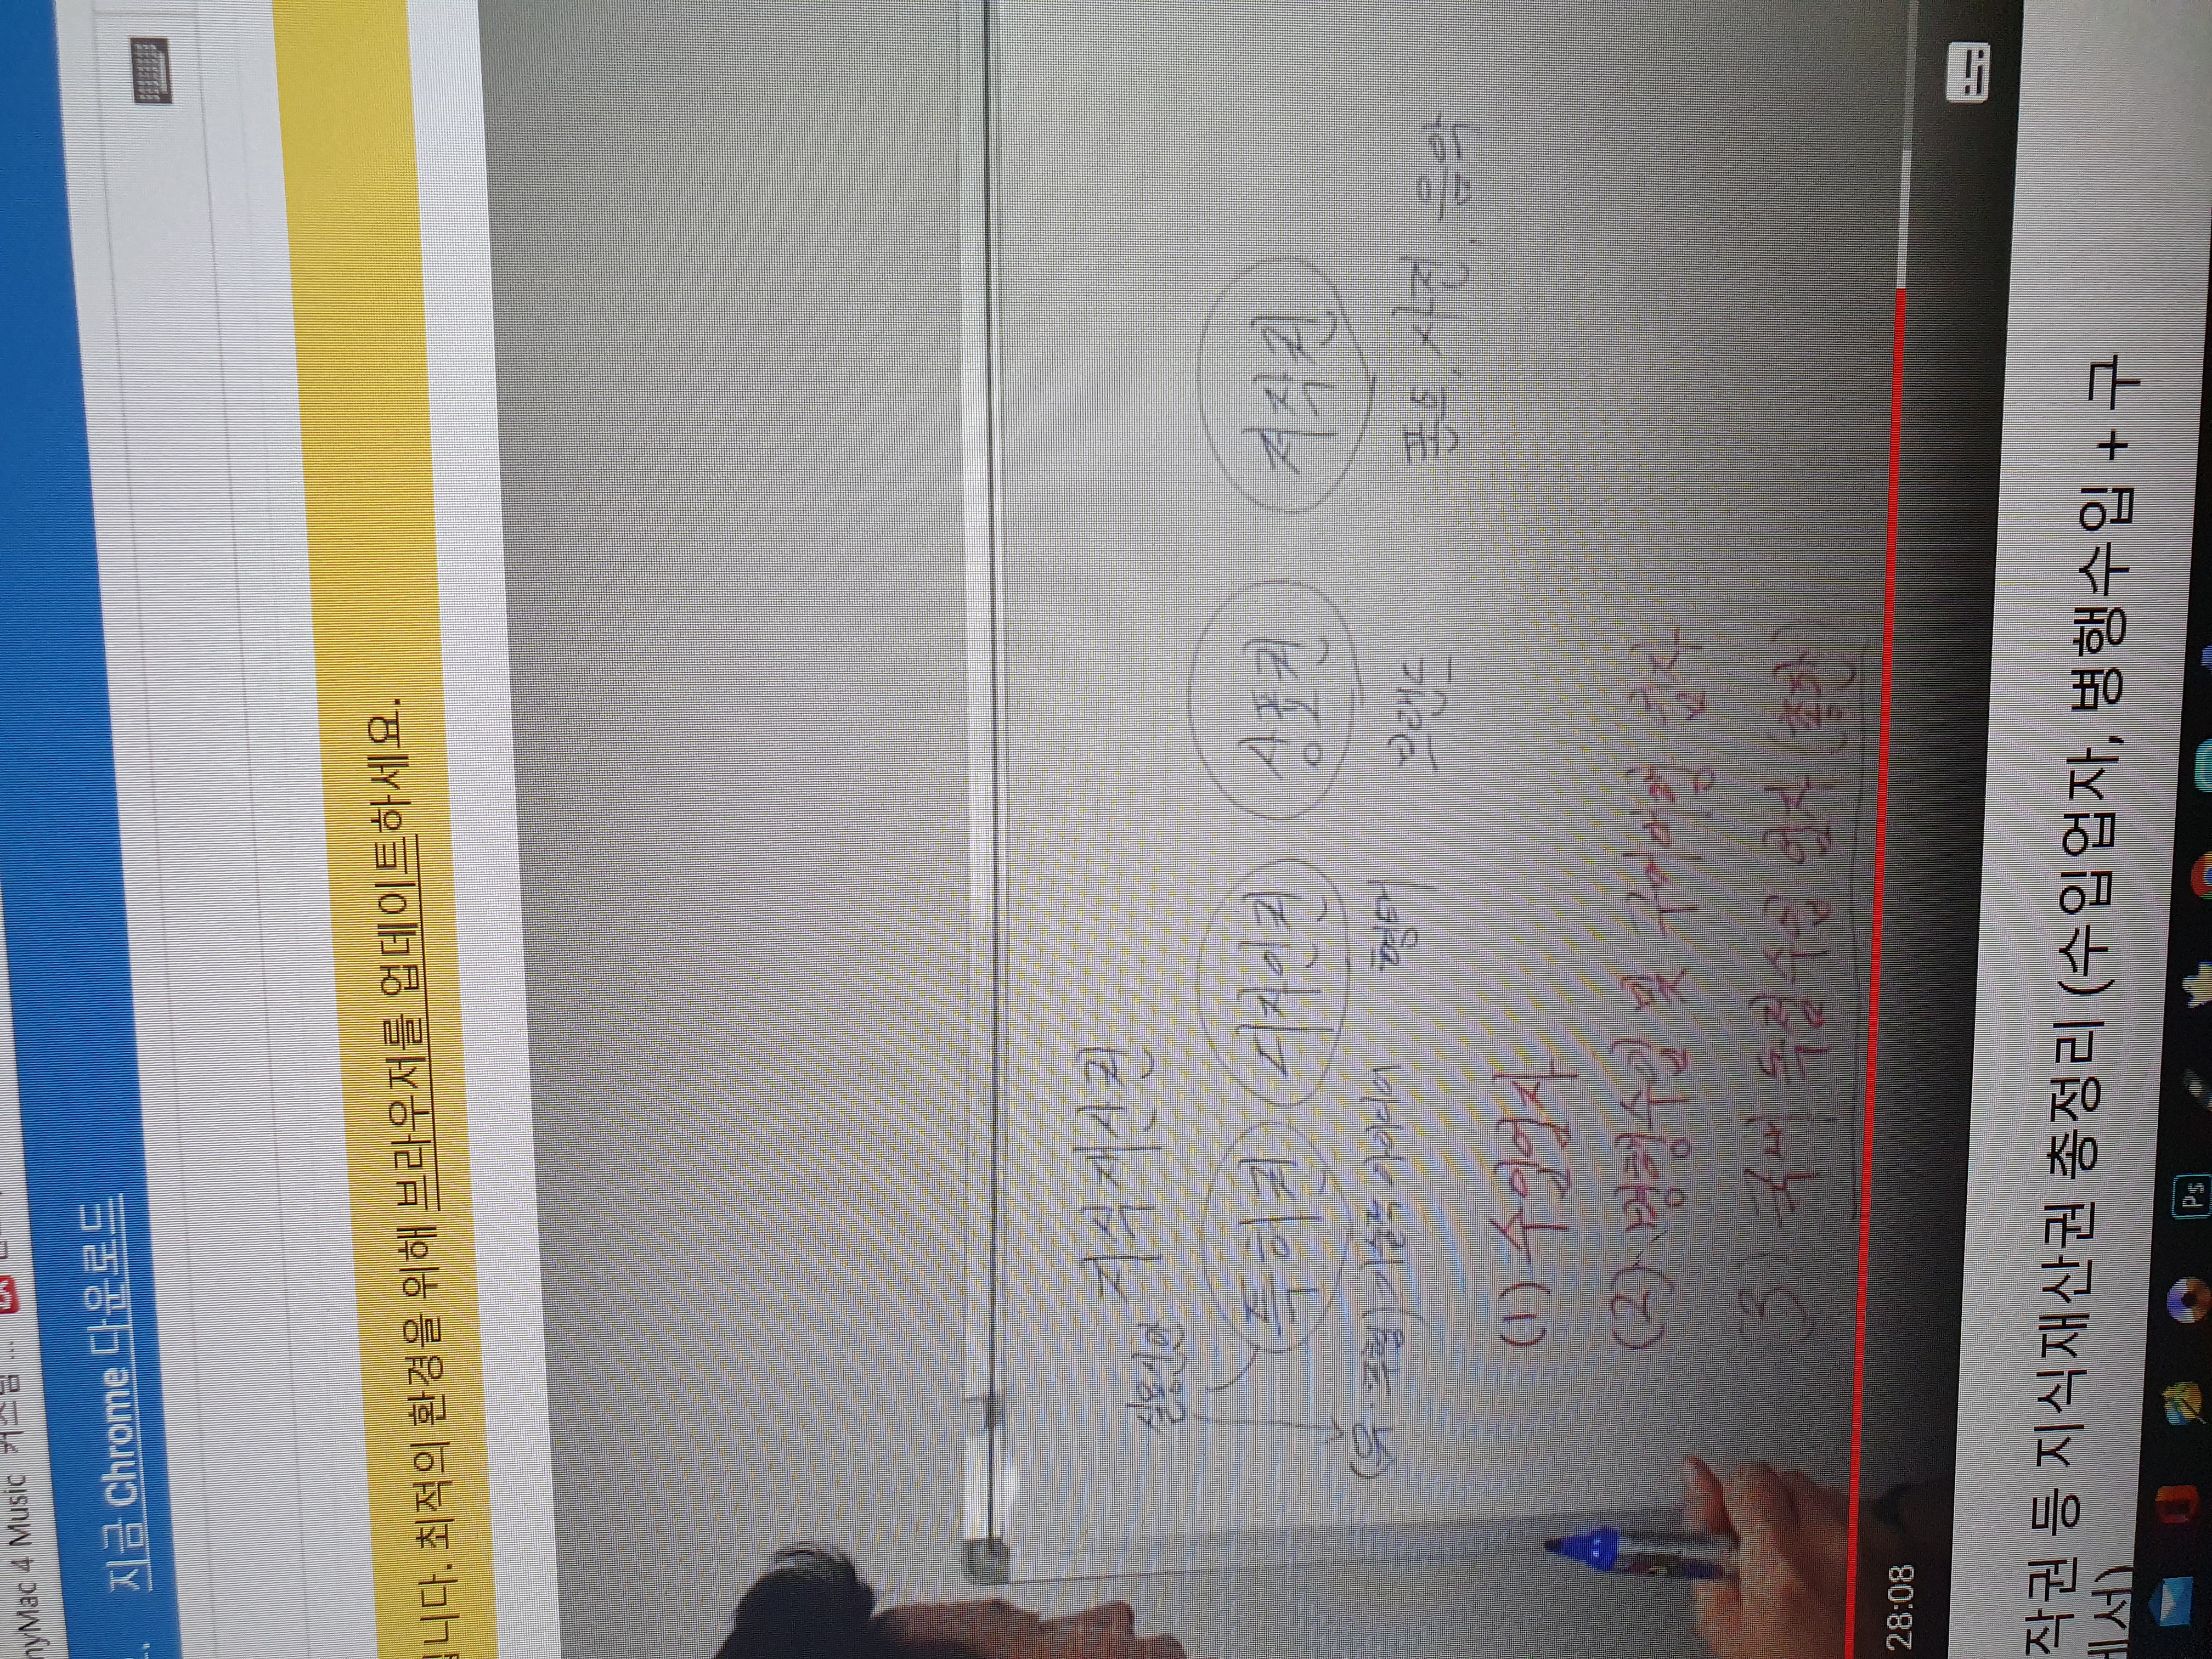 nyMac 4 Music
지금 Chrome 다운로드
니다. 최적의 환경을 위해 브라우저를 업데이트하세요.
지식재산권
실용신안
특허권 디자인권 상표권 저작권
(유·무형) 기술적 아이디어 형태 브랜드 폰트, 사진, 음악
(1) 수입업자
(2) 병행수입 및 구매대행 업자
(3) 국내 독점수입 업자 (총판)
28:08
작권 등 지식재산권 총정리 (수입업자, 병행수입 + 구
에서)
Ps